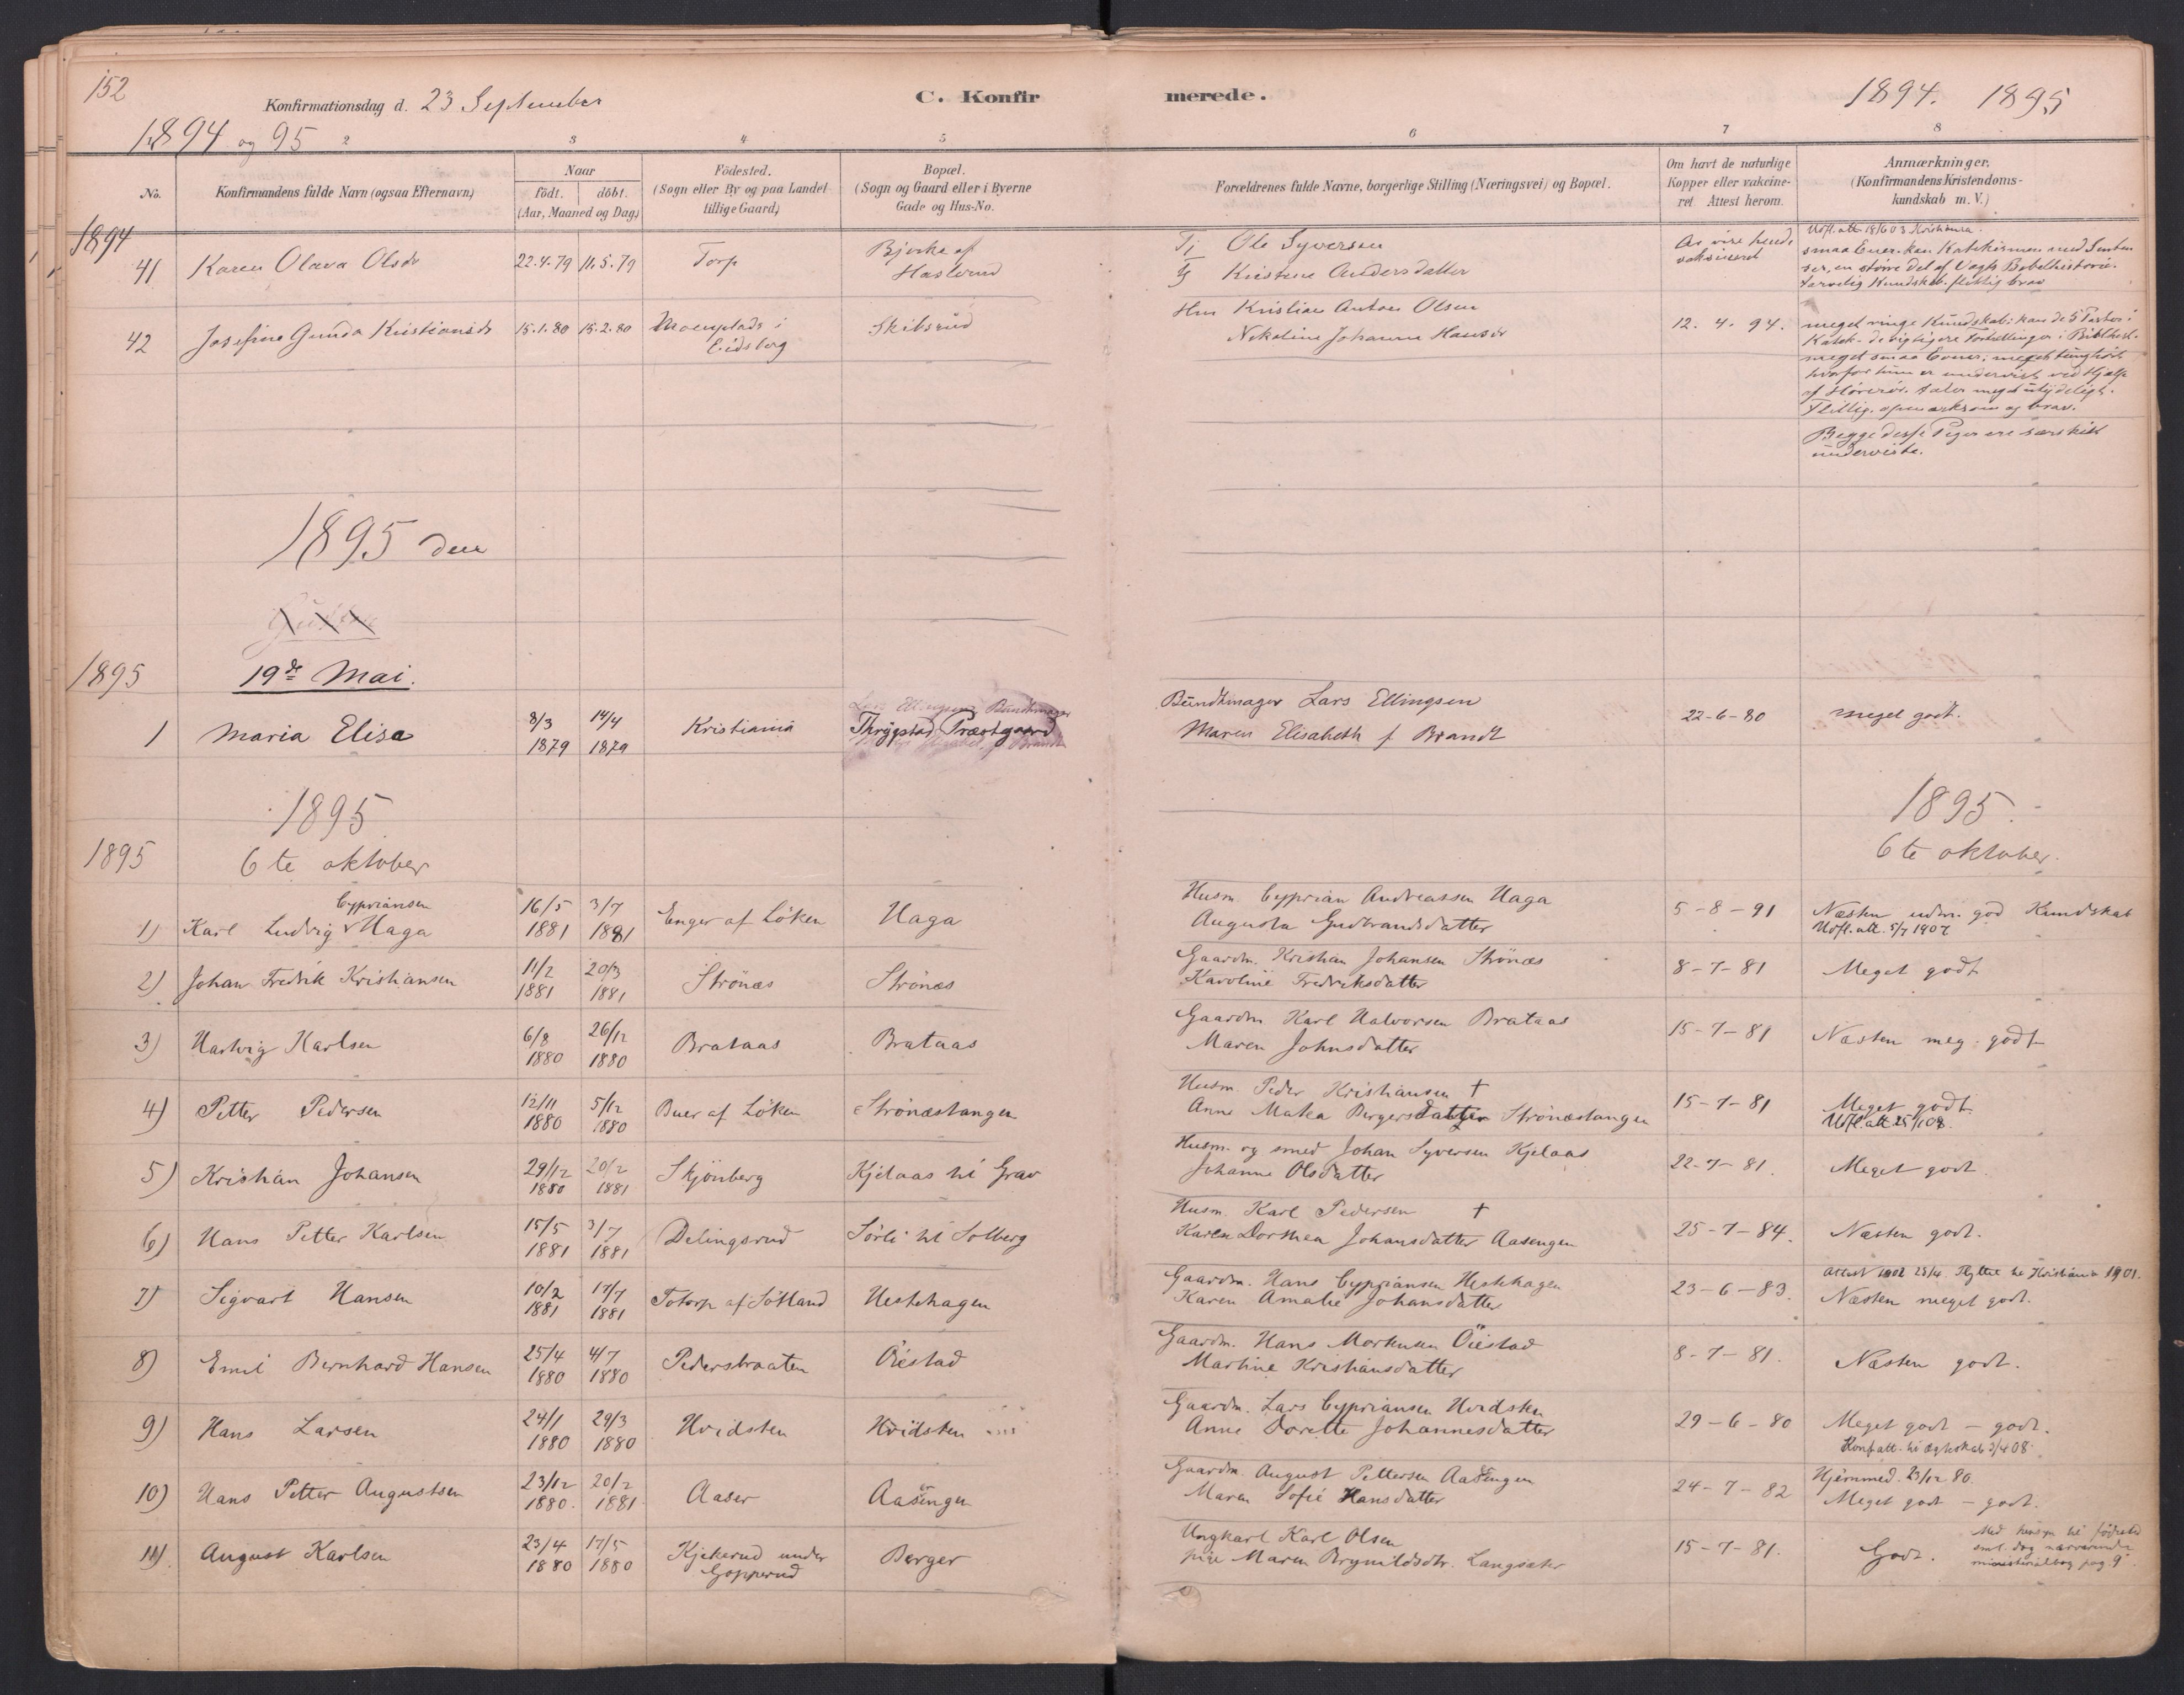 152
Konfirmationsdag d. 23 September
C. Konfirmerede.
1894. 1895
1894 og 95
2 3 4 5 6 7 8
No.
Konfirmandens fulde Navn (ogsaa Efternavn)
Naar
födt. döbt.
(Aar, Maaned og Dag)
Födested.
(Sogn eller By og paa Landet
tillige Gaard)
Bopæl.
(Sogn og Gaard eller i Byerne
Gade og Hus-No.
Forældrenes fulde Navne, borgerlige Stilling (Næringsvei) og Bopæl.
Om havt de naturlige
Kopper eller vakcine-
ret. Attest herom.
Anmærkninger.
(Konfirmandens Kristendoms-
kundskab m. V.)
1894
41 Karen Olava Olsdr 22.4.79 11.5.79 Torp
Bjerke af
Haslerud
Tj Ole Syversen
Kristine Andersdatter
vaksineret
smaa Evner. kan Katekismen med
en större Del af Vogts Bibelhistorie.
Kundskab. flittig brav
42 Josefine Gunda Kristiansdr 15.1.80 15.2.80
i
Eidsberg
Skibsrud
Hm Kristian Anton Olsen
Nikoline Johanne Hansdr
12. 4. 94.
meget ringe Kundskab: kan de 5 Parter i
Katek - de vigtigere Fortællinger i Bibelhist.
meget smaa Evner; meget tunghört
hvorfor hun er undervist ved Hjælp
af Hörerör. taler meget utydeligt.
Flittig, opmærksom og brav.
Begge disse Piger ere særskilt
underviste.
1895 den
1895
19de Mai.
1 Maria Elisa
8/3 14/4
1879 1879
Kristiania
Thrygstad Præstgaard
Bundtmager Lars Ellingsen
Maren Elisabeth f Brandt
22-6-80 meget godt.
1895
1895
6te oktober
1895.
6te oktober.
1) Karl Ludvig Cypriansen Haga
16/5 3/7
1881 1881
Enger af Löken Haga
Husm. Cyprian Andreassen Haga
Augusta Gudbrandsdatter
5-8-91 Næsten udm. god Kundskab
Udfl. att. 5/7 1907
2) Johan Fredrik Kristiansen
11/2 20/3
1881 1881
Strönæs Strönæs
Gaardm. Kristian Johansen Strönæs
Karoline Fredriksdatter
8-7-81 Meget godt
3) Hartvig Karlsen
6/8 26/12
1880 1880
Brataas Brataas
Gaardm Karl Halvorsen Brataas
Maren Johnsdatter
15-7-81 Næsten meg. godt
4) Petter Pedersen
12/11 5/12
1880 1880
Buer af Löken Strönæstangen
Husm. Peder Kristiansen †
Anne Matea Bergersdatter Strönæstangen
15-7-81 Meget godt.
Udfl. att
5) Kristian Johansen
29/12 20/2
1880 1881
Skjönberg Kjelaas til Grav
Husm. og smed Johan Syversen Kjelaas
Johanne Olsdatter
22-7-81. Meget godt.
6) Hans Petter Karlsen
15/5 3/7
1881 1881
Delingsrud Sörli til Solberg
Husm. Karl Pedersen †
Karen Dorthea Johansdatter Aasengen
25-7-84. Næsten godt.
7) Sigvart Hansen
10/2 17/7
1881 1881
Totorp af Sötland Hestehagen
Gaardm. Hans Cypriansen Hestehagen
Karen Amalie Johansdatter
23-6-83.
Attest 1902 25/4. Flyttet til Kristiania 1901.
Næsten meget godt.
8) Emil Bernhard Hansen
25/4 4/7
1880 1880
Pedersbraaten Öiestad
Gaardm. Hans Markusen Öiestad
Martine Kristiansdatter
8-7-81. Næsten godt.
9) Hans Larsen
24/1 29/3
1880 1880
Hvidsten Hvidsten
Gaardm. Lars Cypriansen Hvidsten
Anne Dorette Johannesdatter
29-6-80 Meget godt - godt.
Konf att. til ægteskab 3/4 08.
10) Hans Petter Augustsen
23/12 20/2
1880. 1881
Aaser Aasengen
Gaardm. August Pettersen Aasengen
Maren Sofie Hansdatter
24-7-82
Hjemmed. 23/12 80
Meget godt - godt.
11) August Karlsen
23/4 17/5
1880 1880
Kjekerud under
Gopperud
Berger
Ungkarl Karl Olsen
pige Maren Brynildsdtr. Langsæter
15-7-81. Godt.
Med hensyn til födested
nærværende
ministerialbog pag. 9.